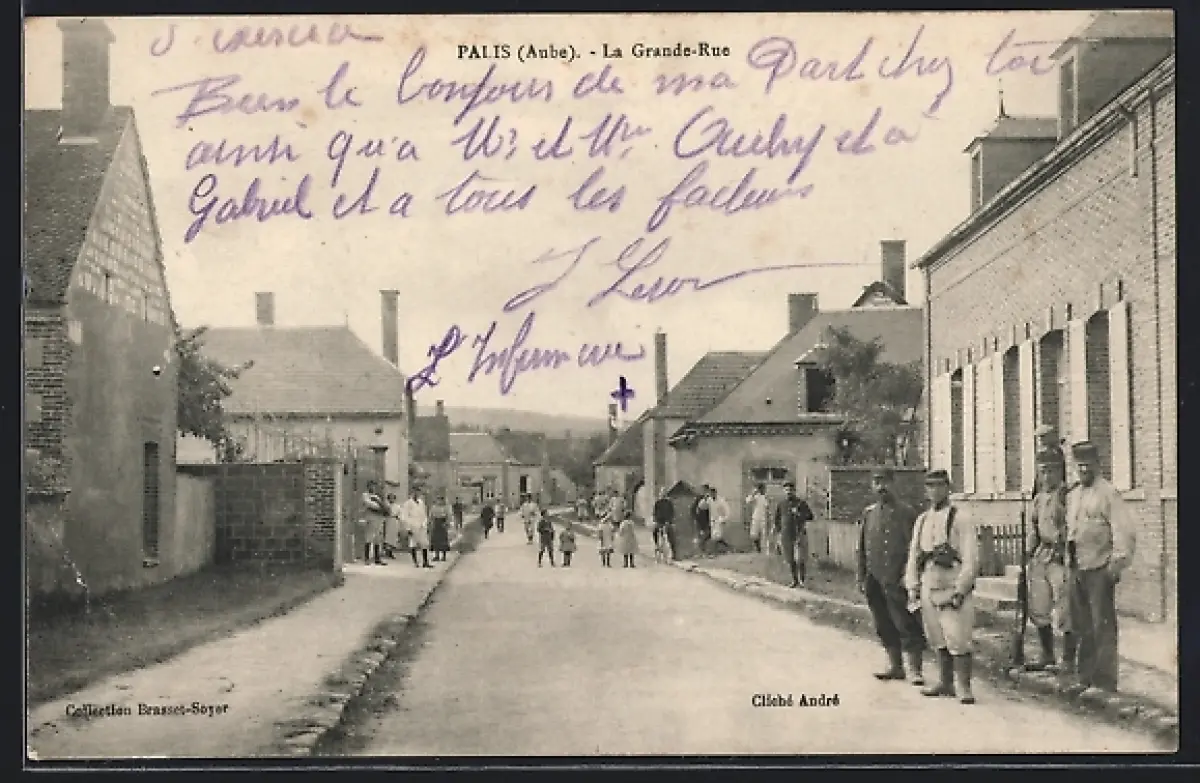 PALIS (Aube). - La Grande-Rue
Bien le bonjour de ma Part chez toi
ainsi qu'a Mr et Mme et a
Gabriel et a tous les facteurs
L'Infirmerie
+
Collection Brasset-Soyer
Cliché André